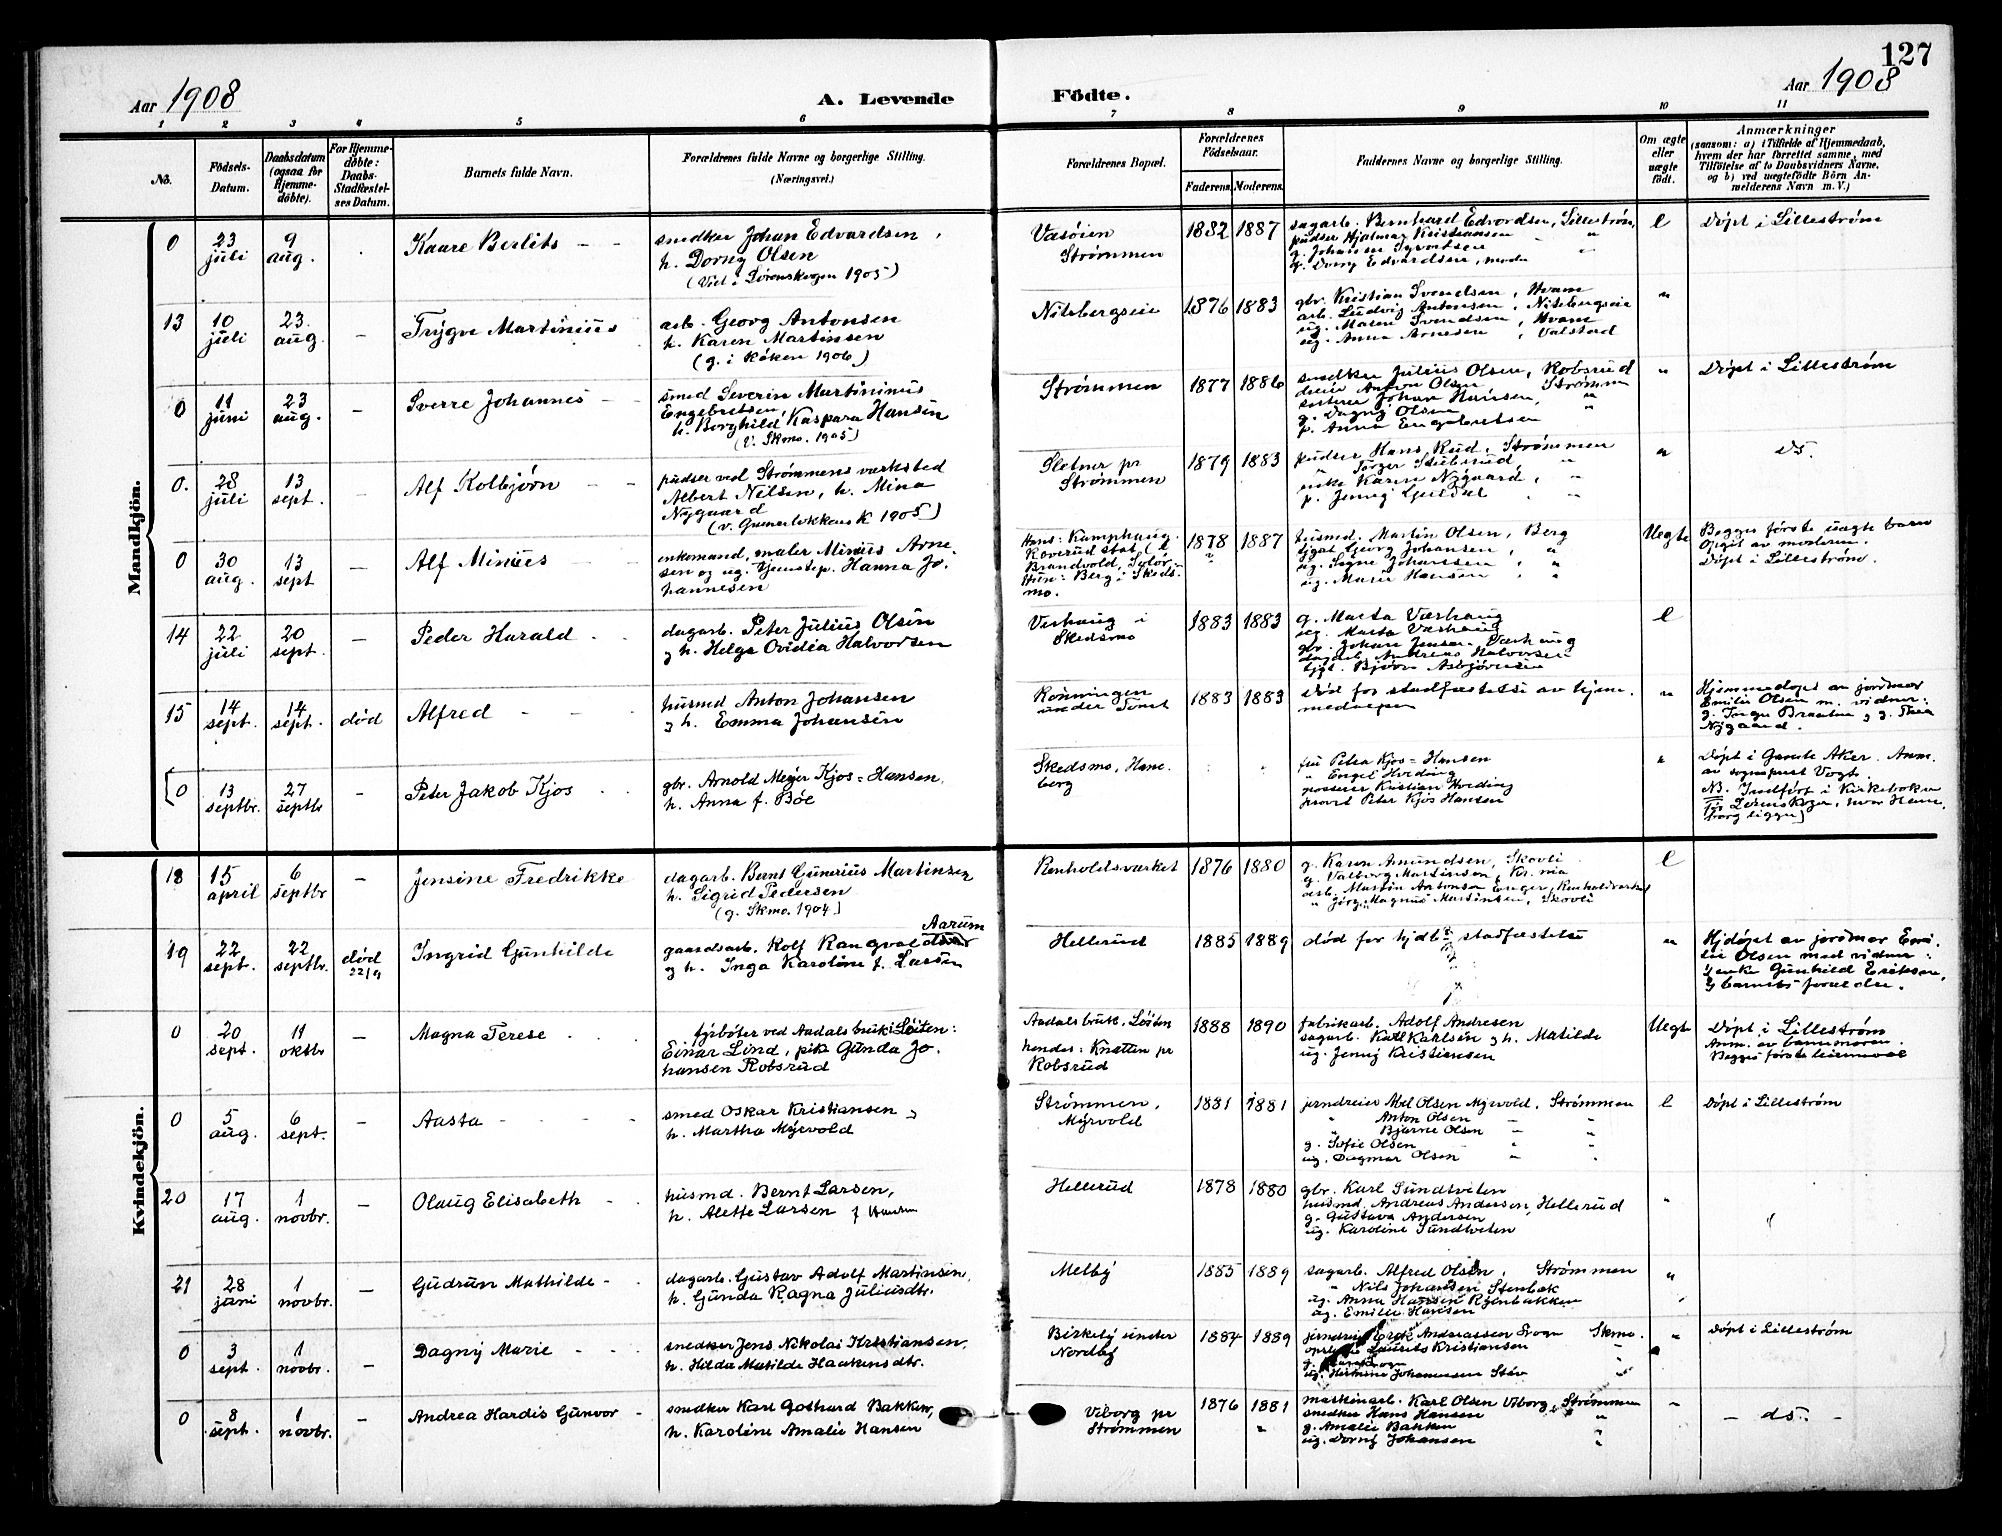 127
Aar 1908
A. Levende
Födte.
Aar 1908
1 2 3 4 5 6 7 8 9 10 11
No.
Födsels-Datum.
Daabsdatum (ogsaa for Hjemme-döbte).
For Hjemme-döbte: Daabs-Stadfæstel-ses Datum.
Barnets fulde Navn.
Forældrenes fulde Navne og borgerlige Stilling.
(Næringsvei.)
Forældrenes Bopæl.
Forældrenes Födselsaar.
Faderens. Moderens.
Faddernes Navne og borgerlige Stilling.
Om ægte eller uægte födt.
Anmærkninger
(saasom: a) i Tilfælde af Hjemmedaab,
hvem der har forrettet samme, med
Tilföielse af to Daabsvidners Navne,
og b) ved uægtefödte Börn An-
melderens Navn m. V.)
Mandkjön.
0 23 juli 9 aug. Kaare Berlits
snedker Johan Edvardsen,
h. Dorny Olsen
(Viet i Lørenskogen 1905)
Vasøien
Strømmen
1882 1887
sagarb. Bernhard Edvardsen, Lillestrøm,
pudser Hjalmar Kristiansen
g. Johanne Syvertsen
g. Dorny Edvardsen, mode
e Døpt i Lillestrøm
13 10 juli 23. aug. – Trygve Martinius
arb. Georg Antonsen
h. Karen Martinsen
(g. i Røken 1906)
Nitebergseie
1876 1883
gbr. Kristian Svendsen, Hvam
arb. Ludvig Antonsen, Nitebergseie
ug. Maren Svendsen, Hvam
ug. Anna Arnesen, Valstad
"
0 11 juni 23 aug. – Sverre Johannes
smed Severin Martininus
Engebretsen,
h. Borghild Kaspara Hansen
(V. Skmo. 1905)
Strømmen
1877 1886
snedker Julius Olsen, Robsrud
dreier Anton Olsen, Strømmen
sorterer Johan Hansen, "
g. Dagny Olsen "
p. Anna Engebretsen
" Døpt i Lillestrøm
0. 28 juli 13 sept. – Alf Kolbjørn
pudser ved Strømmens værksted
Albert Nilsen, h. Mina
Nygaard
(v. Grønerløkkens K 1905)
Sletner pr
Strømmen
1879 1883
pudser Hans Rud, Strømmen
enke Karen Nygaard, "
p. Jenny "
" do.
0 30 aug. 13 sept – Alf Minius
enkemand, maler Minius Arne-
sen og ug. tjenstep. Hanna Jo-
hannesen
Hans: Kamphaug.
Roverud stat.
Brandvold, Solør
Hun: Berg i Skeds-
mo.
1878 1887
husmd. Martin Olsen, Berg
tjgt. Georg Johansen, "
ug. Signe Johansen, "
ug. Marie Hansen, "
Uegte Begges første uægte barn
Opgit av moderen.
Døpt i Lillestrøm.
14 22 juli 20 sept. – Peder Harald
dagarb. Peter Julius Olsen
og h. Helga Ovidia Halvorsen
Verhaug i
Skedsmo
1883 1883
g. Marta Værhaug
ug. Marta Værhaug
gbr. Johan Jensen Værhaug
dagarb. Andreas Halvorsen
tjgt. Bjørn Asbjørnsen
e
15 14 sept. 14 sept. død Alfred
husmd Anton Johansen
og h. Emma Johansen
Rønningen
under Tomt
1883 1883
Død før stadfæstelse av hjem-
medaapen
" Hjemmedøpt av jordmor
Emilie Olsen m. vidner:
g. Inga Braaten og g. Thea
Nygaard.
[0 13 septbr. 27 septbr Peter Jakob Kjos
gbr. Arnold Meyer Kjos-Hansen,
h. Anna f. Bøe
Skedsmo, Hane-
berg
fru Petra Kjos-Hansen
" Engel Hveding
grosserer Kristian Hveding
provst Peter Kjos Hansen
" Døpt i Gamle Aker. Anm.
av sogneprest Vogt.
NB. Indført i Kirkeboken
for Lørenskogen, hvor Hane-
borg ligger]
Kvindekjön.
18 15 april 6 septbr – Jensine Fredrikke
dagarb. Bernt Gunerius Martinsen
h. Sigrid Pedersen
(g. Skmo. 1904)
Renholdsværket
1876 1880
g. Karen Amundsen, Skovli
g. Valborg Martinsen, Kr.nia
arb. Martin Antonsen Enger, Renholdsverket
" Jørg. Magnus Martinsen, Skovli
e
19 22 sept. 22 septbr. død 22/9 Ingrid Gunhilde
Aarum
gaardsarb. Rolf Rangvaldsen
og h. Inga Karoline f. Larsen
Hellerud
1885 1889
død før hjdb stadfæstelse
" Hjdøpt av jordmor Emi-
lie Olsen med vidner:
Enke Gunhild Eriksen,
og barnets forældre.
0 20 sept. 11 oktbr – Magna Terese
fyrbøter ved Aadals bruk i Løiten:
Einar Lind, pike Gunda Jo-
hansen Robsrud
Aadals bruk, Løiten
hendes: Knatten pr
Robsrud
1888 1890
fabrikarb. Adolf Andresen
sagarb. Karl Karlsen og h. Matilde
ug. Jenny Kristiansen
Uegte Døpt i Lillestrøm
Anm. av barnemoren.
Begges første leiermaal
0 5 aug. 6 sept. – Aasta
smed Oskar Kristiansen og
h. Martha Myrvold
Strømmen,
Myrvold
1881 1881
jerndreier Abel Olsen Myrvold, Strømmen
" Anton Olsen – "
" Bjarne Olsen – "
g. Sofie Olsen – "
ug. Dagmar Olsen " "
e Døpt i Lillestrøm
20 17 aug. 1 novbr. – Olaug Elisabeth
husmd. Bernt Larsen,
h. Alette Larsen f Hansen
Hellerud
1878 1880
gbr. Karl Sundtveten
husmd. Andreas Andersen, Hellerud
g. Gustava Andersen
ug. Karoline Sundtveten
"
21 28 juni 1 novbr. – Gudrun Mathilde
dagarb. Gustav Adolf Martinsen,
h. Gunda Ragna Juliusdtr.
Melby
1885 1889
sagarb. Alfred Olsen, Strømmen
" Nils Johansen Stenbæk
ug. Anna Hansen Rjenbakken
ug. Emilie Hansen
"
0 3 sept. 1 novbr. – Dagny Marie
snedker Jens Nikolai Kristiansen,
h. Hilda Matilde Haakensdtr.
Birkeby under
Nordby
1884 1889
Andreassen Skmo.
Laurits Kristiansen
ug. Hermine Johannessen
" Døpt i Lillestrøm
0 8 sept. 1 novbr. – Andrea Hardis Gunvor
snedker Karl Gothard Bakken,
h. Karoline Amalie Hansen
Viborg pr
Strømmen
1876 1881
maskinarb. Karl Olsen Viborg, Strømmen
snedker Hans Hansen "
g. Amalie Bakken "
ug. Dorny Johansen "
– do. –